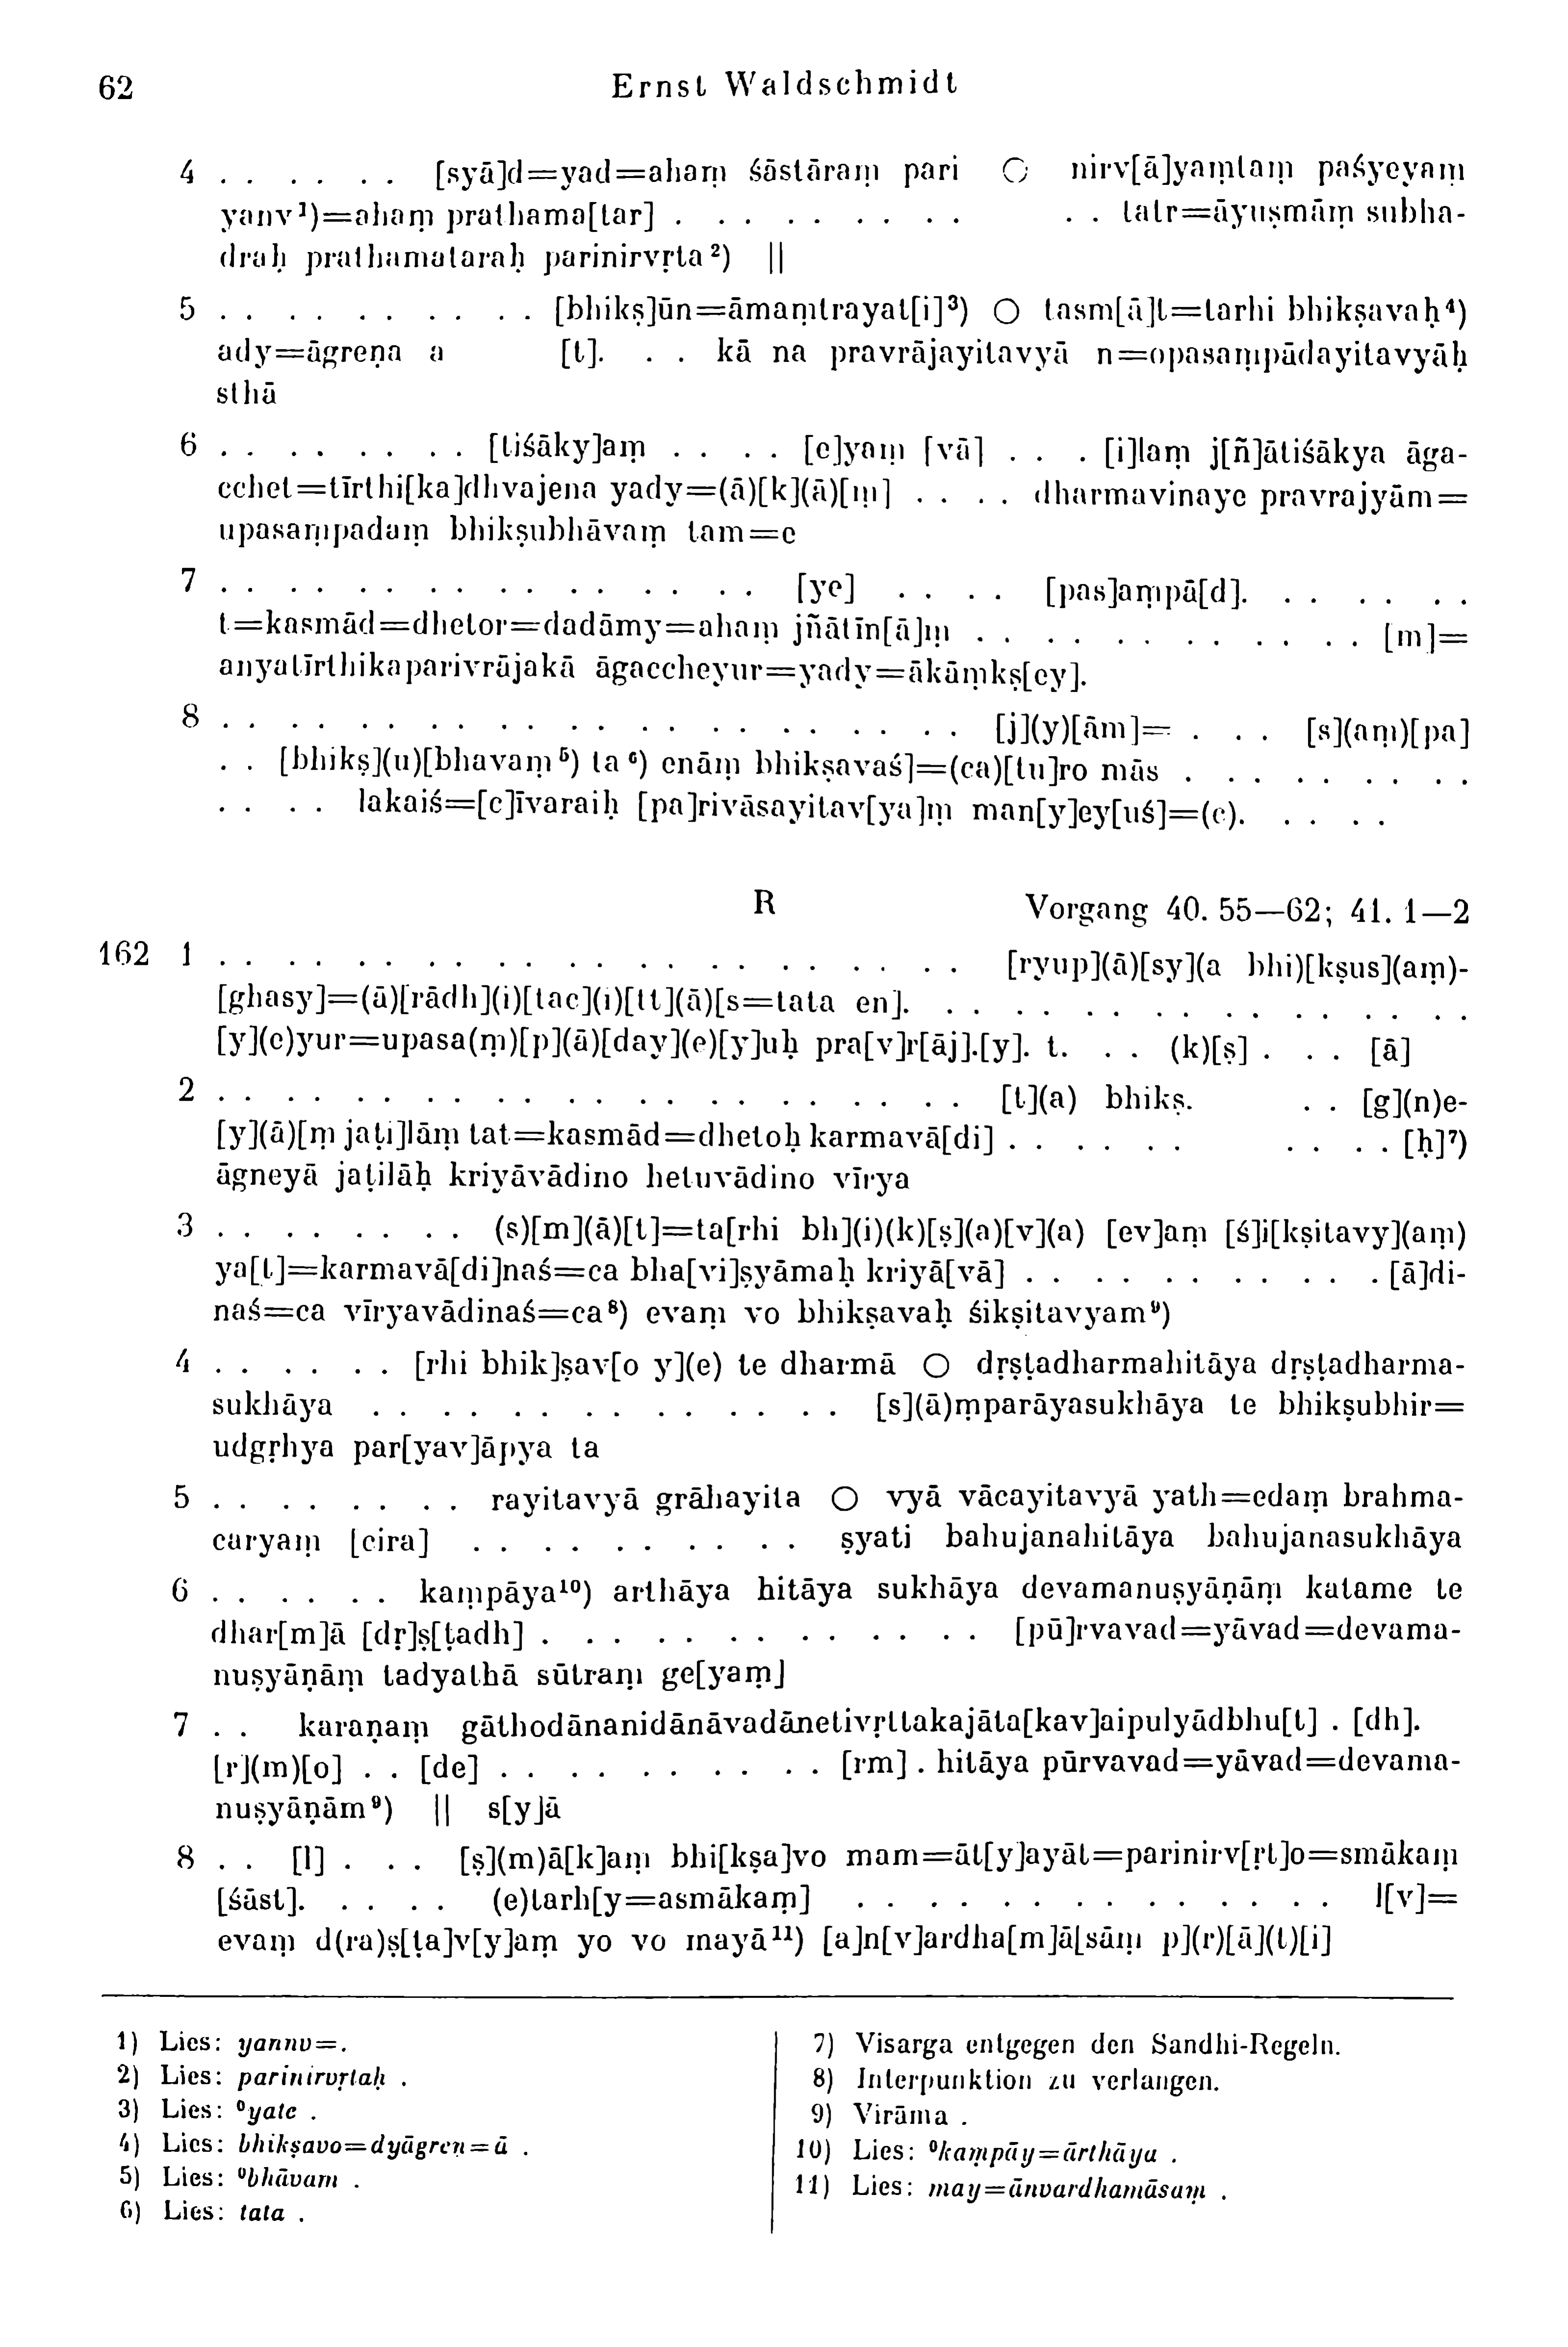 62 Ernst Waldschmidt
4 . . . . . . [syā]d=yad=ahaṃ śāstāraṃ pari ○ nirv[ā]yaṃtaṃ paśyeyaṃ
yanv¹)=ahaṃ prathama[tar] . . . . . . . . . . . tatr=āyuṣmāṃ subha-
draḥ prathamataraḥ parinirvṛta²) ||
5 . . . . . . . . . . [bhikṣ]ūn=āmaṃtrayat[i]³) ○ tasm[ā]t=tarhi bhikṣavaḥ⁴)
ady=āgreṇa a [t]. . . kā na pravrājayitavyā n=opasaṃpādayitavyāḥ
sthā
6 . . . . . . . . [tiśāky]aṃ . . . . [e]yaṃ [vā] . . . [i]laṃ j[ñ]ātiśākya āga-
cchet=tīrthi[ka]dhvajena yady=(ā)[k](ā)[ṃ] . . . . dharmavinaye pravrajyām=
upasaṃpadaṃ bhikṣubhāvaṃ tam=e
7 . . . . . . . . . . . . . . . . [ye] . . . . [pas]aṃpā[d]. . . . . . .
t=kasmād=dhetor=dadāmy=ahaṃ jñātīn[ā]ṃ . . . . . . . . . . . . [m]=
anyatīrthikaparivrājakā āgaccheyur=yady=ākāṃkṣ[ey].
8 . . . . . . . . . . . . . . . . . . . . . . [j](y)[ām]= . . . [s](aṃ)[pa]
. . [bhikṣ](u)[bhavaṃ⁵) ta⁶) enāṃ bhikṣavaś]=(ca)[tu]ro mās . . . . . . . . .
. . . . lakaiś=[c]īvaraiḥ [pa]rivāsayitav[ya]ṃ man[y]ey[uś]=(c). . . . .
R Vorgang 40. 55—62; 41. 1—2
162 1 . . . . . . . . . . . . . . . . . . . . . . [ryup](ā)[sy](a bhi)[kṣus](aṃ)-
[ghasy]=(ā)[rādh](i)[tac](i)[tt](ā)[s=tata en]. . . . . . . . . . . . . . . . .
[y](e)yur=upasa(ṃ)[p](ā)[day](e)[y]uḥ pra[v]r[āj].[y]. t. . . (k)[ṣ] . . . [ā]
2 . . . . . . . . . . . . . . . . . . . . . . [t](a) bhikṣ. . . [g](n)e-
[y](ā)[ṃ jaṭi]lāṃ tat=kasmād=dhetoḥ karmavā[di] . . . . . . . . . . [ḥ]⁷)
āgneyā jaṭilāḥ kriyāvādino hetuvādino vīrya
3 . . . . . . . . (s)[m](ā)[t]=ta[rhi bh](i)(k)[ṣ](a)[v](a) [ev]aṃ [ś]i[kṣitavy](aṃ)
ya[t]=karmavā[di]naś=ca bha[vi]ṣyāmaḥ kriyā[vā] . . . . . . . . . . . [ā]di-
naś=ca vīryavādinaś=ca⁸) evaṃ vo bhikṣavaḥ śikṣitavyam⁹)
4 . . . . . . [rhi bhik]ṣav[o y](e) te dharmā ○ dṛṣṭadharmahitāya dṛṣṭadharma-
sukhāya . . . . . . . . . . . . . . [s](ā)ṃparāyasukhāya te bhikṣubhir=
udgṛhya par[yav]āpya ta
5 . . . . . . . . rayitavyā grāhayita ○ vyā vācayitavyā yath=edaṃ brahma-
caryaṃ [cira] . . . . . . . . . . ṣyati bahujanahitāya bahujanasukhāya
6 . . . . . . kaṃpāya¹⁰) arthāya hitāya sukhāya devamanuṣyāṇāṃ katame te
dhar[m]ā [dṛ]ṣ[ṭadh] . . . . . . . . . . . . . [pū]rvavad=yāvad=devama-
nuṣyāṇāṃ tadyathā sūtraṃ ge[yaṃ]
7 . . karaṇaṃ gāthodānanidānāvadānetivṛttakajāta[kav]aipulyādbhu[t] . [dh].
[r](m)[o] . . [de] . . . . . . . . . . [rm] . hitāya pūrvavad=yāvad=devama-
nuṣyāṇām⁹) || s[y]ā
8 . . [l] . . . [ṣ](m)ā[k]aṃ bhi[kṣa]vo mam=āt[y]ayāt=parinirv[ṛt]o=smākaṃ
[śāst]. . . . . (e)tarh[y=asmākaṃ] . . . . . . . . . . . . . . l[v]=
evaṃ d(ra)ṣ[ṭa]v[y]aṃ yo vo mayā¹¹) [a]n[v]ardha[m]ā[sāṃ p](r)[ā](t)[i]
1) Lies: yannv=.
2) Lies: parinirvṛtaḥ .
3) Lies: ⁰yate .
4) Lies: bhikṣavo=dyāgreṇ=ā .
5) Lies: ⁰bhāvam .
6) Lies: tata .
7) Visarga entgegen den Sandhi-Regeln.
8) Interpunktion zu verlangen.
9) Virāma .
10) Lies: ⁰kaṃpāy=ārthāya .
11) Lies: may=ānvardhamāsaṃ .